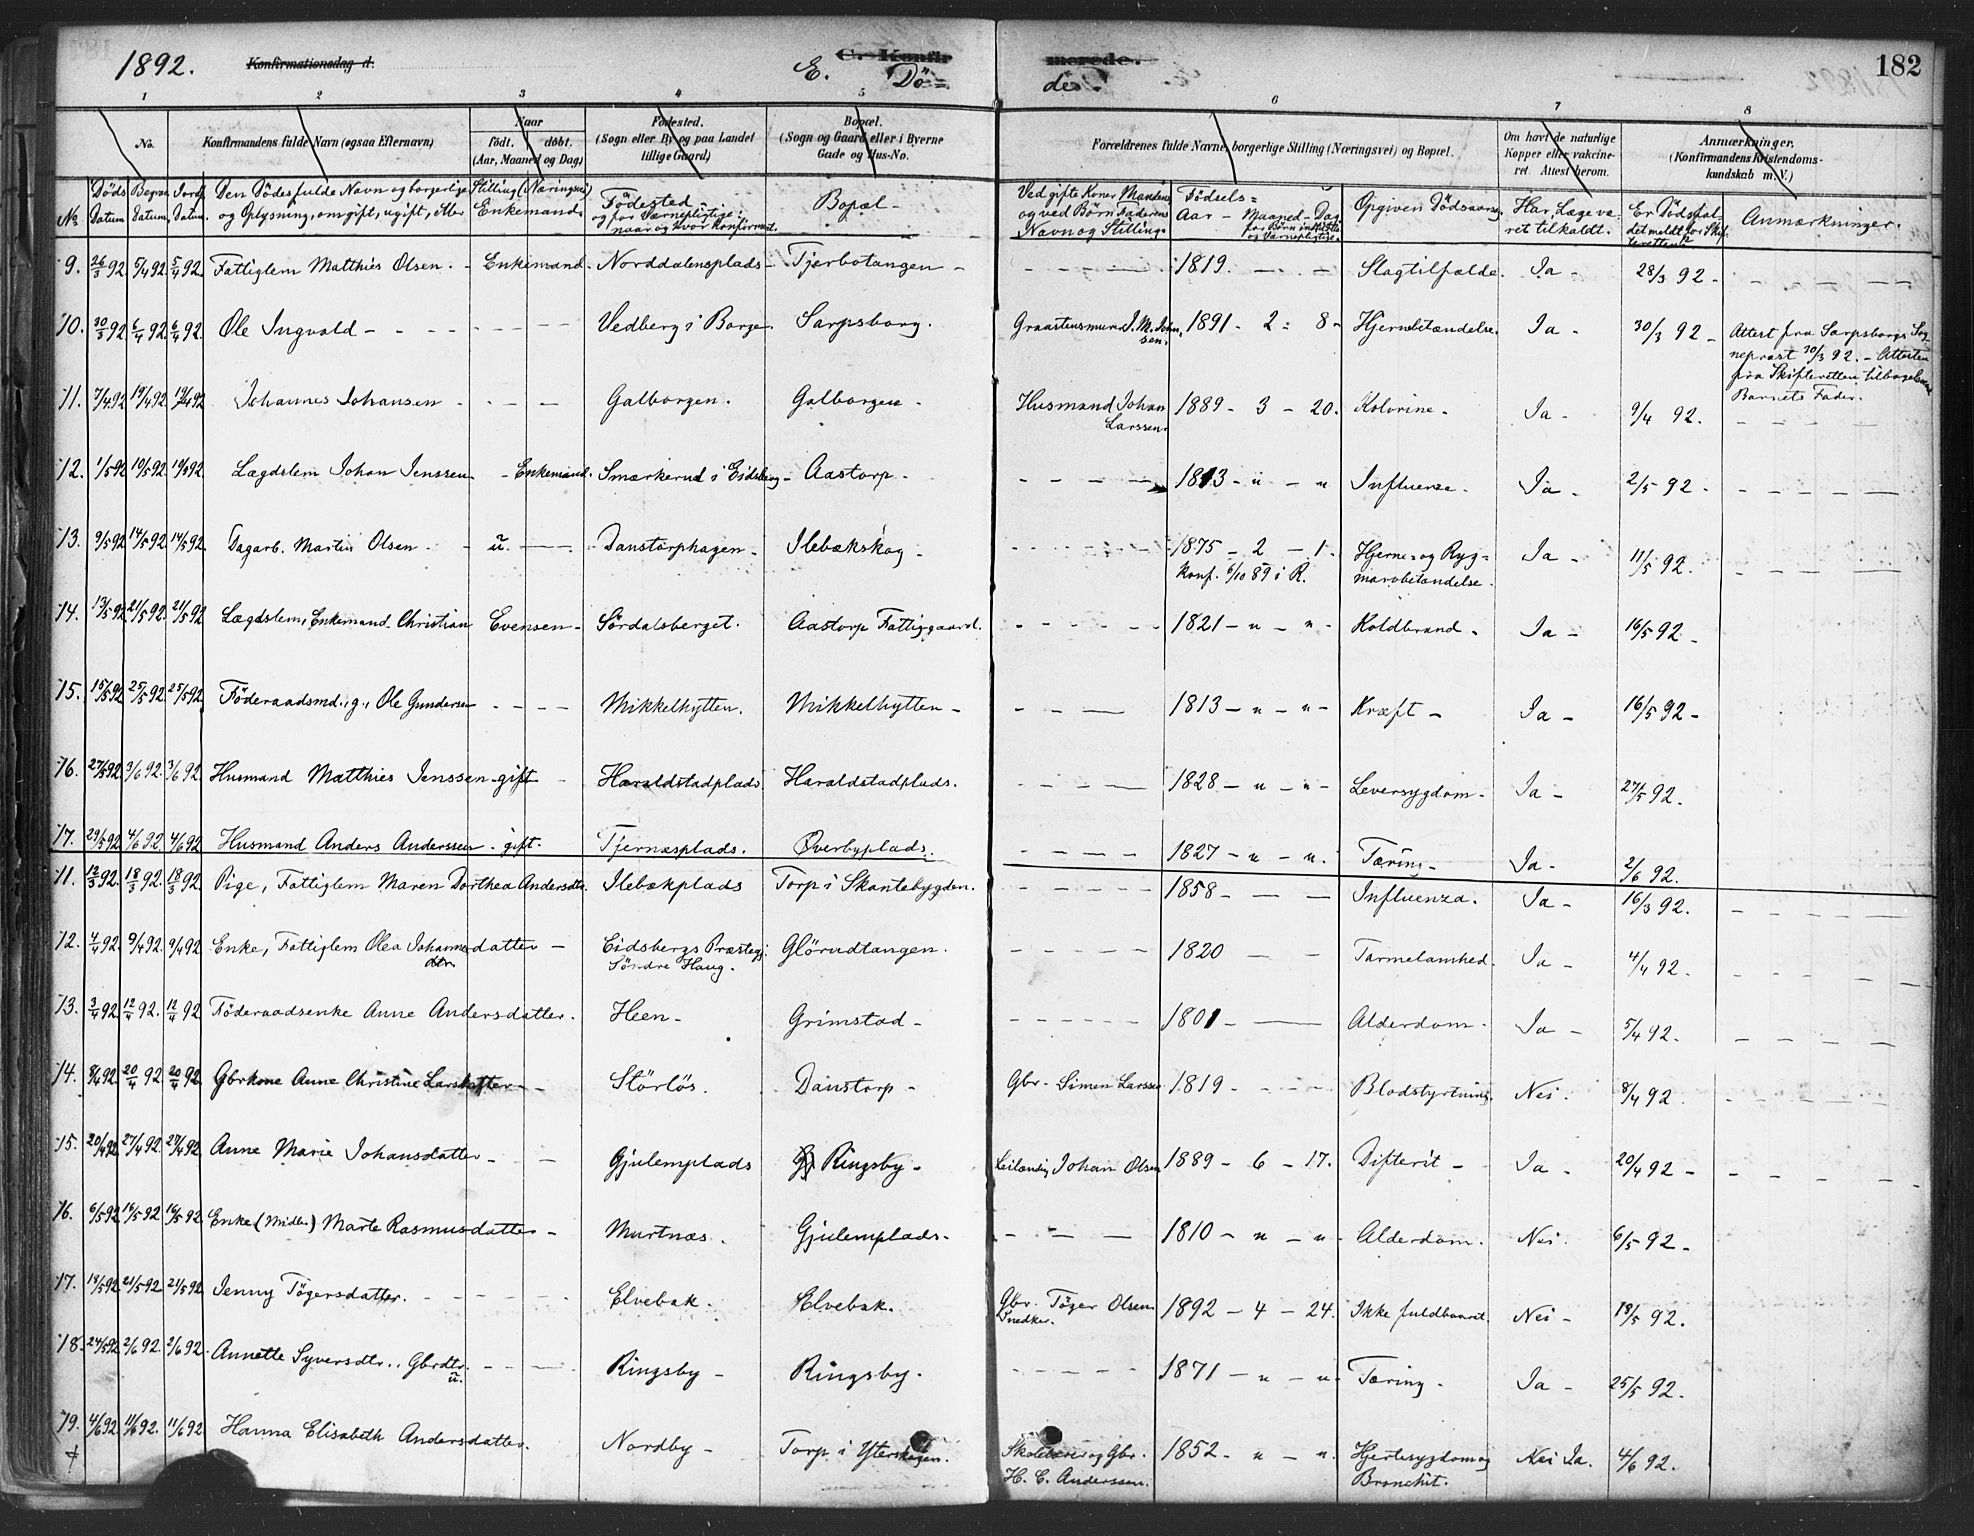 1892.
Konfirmationsdag d.
E. C. Konfirmerede.
Døde.
182
1 2 3 4 5 6 7 8
No. Konfirmandens fulde Navn (ogsaa Efternavn) Naar født. døbt. (Aar, Maaned og Dag) Fødested. (Sogn eller By og paa Landet tillige Gaard) Bopæl. (Sogn og Gaard eller i Byerne Gade og Hus-No. Forældrenes fulde Navne, borgerlige Stilling (Næringsvei) og Bopæl. Om havt de naturlige Kopper eller vakcineret. Attest herom. Anmærkninger. (Konfirmandens Kristendomskundskab m. V.)
No. Døds Datum. Begra. Datum. Jordf. Datum. Den Dødes fulde Navn og borgerlige Stilling (Næringsvei) og Oplysning, om gift, ugift, eller Enkemand. Fødested - og for Værnepligtige: naar og hvor konfirmert. Bopæl - Ved gifte Koner Mandens og ved Børn Faderens Navn og Stilling. Fødsels= Aar - Maaned - Dag Opgiven Dødsaarsag. Har Læge været tilkaldt. Er Dødsfaldet meldt for Skifteretten? Anmærkninger.
9. 26/3 92 5/4 92 5/4 92. Fattiglem Matthies Olsen. - Enkemand. Norddalensplads - Tjerbotangen - 1819. - - Slagtilfælde. Ja - 28/3 92 -
10. 30/3 92 6/4 92 6/4 92. Ole Ingvald - Vedberg i Borge. Sarpsborg. Graastensmurer J. M. Johnsen. 1891 - 2 - 8 - Hjernebetændelse. Ja - 30/3 92 - Attest fra Sarpsborgs Sogneprest 30/3 92. - Attesten fra Skifteretten Barnets Fader.
11. 7/4 92 19/4 92 19/4 92 Johannes Johansen - Galborgen. Galborgen - Husmand Johan Larssen. 1889 - 3 - 20. Kolerine - Ja - 9/4 92.
12. 1/5 92 10/5 92 10/5 92. Lægdslem Johan Jenssen - Enkemand. Smærkerud i Eidsberg - Aastorp - 1813 - " - " Influenza. Ja - 2/5 92 -
13. 9/5 92 14/5 92 14/5 92. Dagarb. Martin Olsen - u. Danstorphagen - Ilebækskog - 1875 - 2 - 1. Konf. 6/10 89 i R. Hjerne- og Rygmarvbetændelse. Ja - 11/5 92.
14. 13/5 92 21/5 92. 21/5 92 Lægdslem, Enkemand Christian Evensen - Sørdalsberget. Aastorp Fattiggaard. 1821 - " - " - Koldbrand - Ja - 16/5 92 -
15. 15/5 92 25/5 92 25/5 92. Føderaadsmd., g., Ole Gundersen Mikkelhytten. Mikkelhytten - 1813 - " - " - Kræft - Ja - 16/5 92 -
16. 27/5 92 3/6 92. 3/6 92. Husmand Matthies Jenssen - gift - Haraldstadplads Haraldstadplads. 1828 - " - " - Leversygdom - Ja - 27/5 92.
17. 29/5 92 4/6 92. 4/6 92 Husmand Anders Anderssen - gift - Tjernæsplads. Øverbyplads. 1827 - " - ". Tæring - Ja - 2/6 92.
11. 12/3 92. 18/3 92. 18/3 92. Pige, Fattiglem Maren Dorthea Andersdtr. Ilebækplads Torp i Skantebygden. 1858 - Influenza. Ja - 16/3 92.
12. 4/4 92. 9/4 92. 9/4 92 Enke, Fattiglem Olea Johannesdatter - Eidsbergs Præstegj. Søndre Haug. Glørudtangen. 1820 Tarmelamhed. Ja - 4/4 92.
13. 3/4 92. 12/4 92. 12/4 92 Føderaadsenke Anne Andersdatter. Heen - Grimstad - 1801 - Alderdom - Ja - 5/4 92.
14. 8/4 92. 20/4 92 20/4 92 Gbrkone Anne Christine Larsdatter - Störlös. Danstorp - Gbr. Simen Larssen 1819 - Blodstyrtning. Nei. 8/4 92.
15. 20/4 92 27/4 92. 27/4 92 Anne Marie Johansdatter - Gjulemplads Ringsby - Leilænding Johan Olsen 1889 - 6 - 17. Difterit - Ja - 20/4 92 -
16. 6/5 92 16/5 92 16/5 92. Enke (Midlr.) Marte Rasmusdatter - Murtnæs. Gjulemplads. 1810 - " - " - Alderdom. Nei. 6/5 92 -
17. 18/5 92 21/5 92 21/5 92 Jenny Tøgersdatter. Elvebak. Elvebak. Gbr. Snedker. Tøger Olsen 1892 - 4 - 24. Ikke fuldbaaret. Nei - 18/5 92.
18. 24/5 92 2/6 92. 2/6 92. Annette Syversdtr., Gbrdtr. u. Ringsby - Ringsby. 1871 - " - " - Tæring - Ja - 25/5 92.
19. 4/6 92. 11/6 92. 11/6 92 Hanna Elisabeth Andersdatter. Nordby - Torp i Ytterskogen. Skolelærer og Gbr. H. C. Anderssen. 1852 - " - " Hjertesygdom og Bronchit. Nei Ja. 4/6 92.